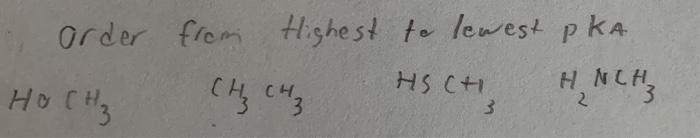 Order from Highest to lowest pKA
HOCH₃ CH₃CH₃ HSCH₃ H₂NCH₃